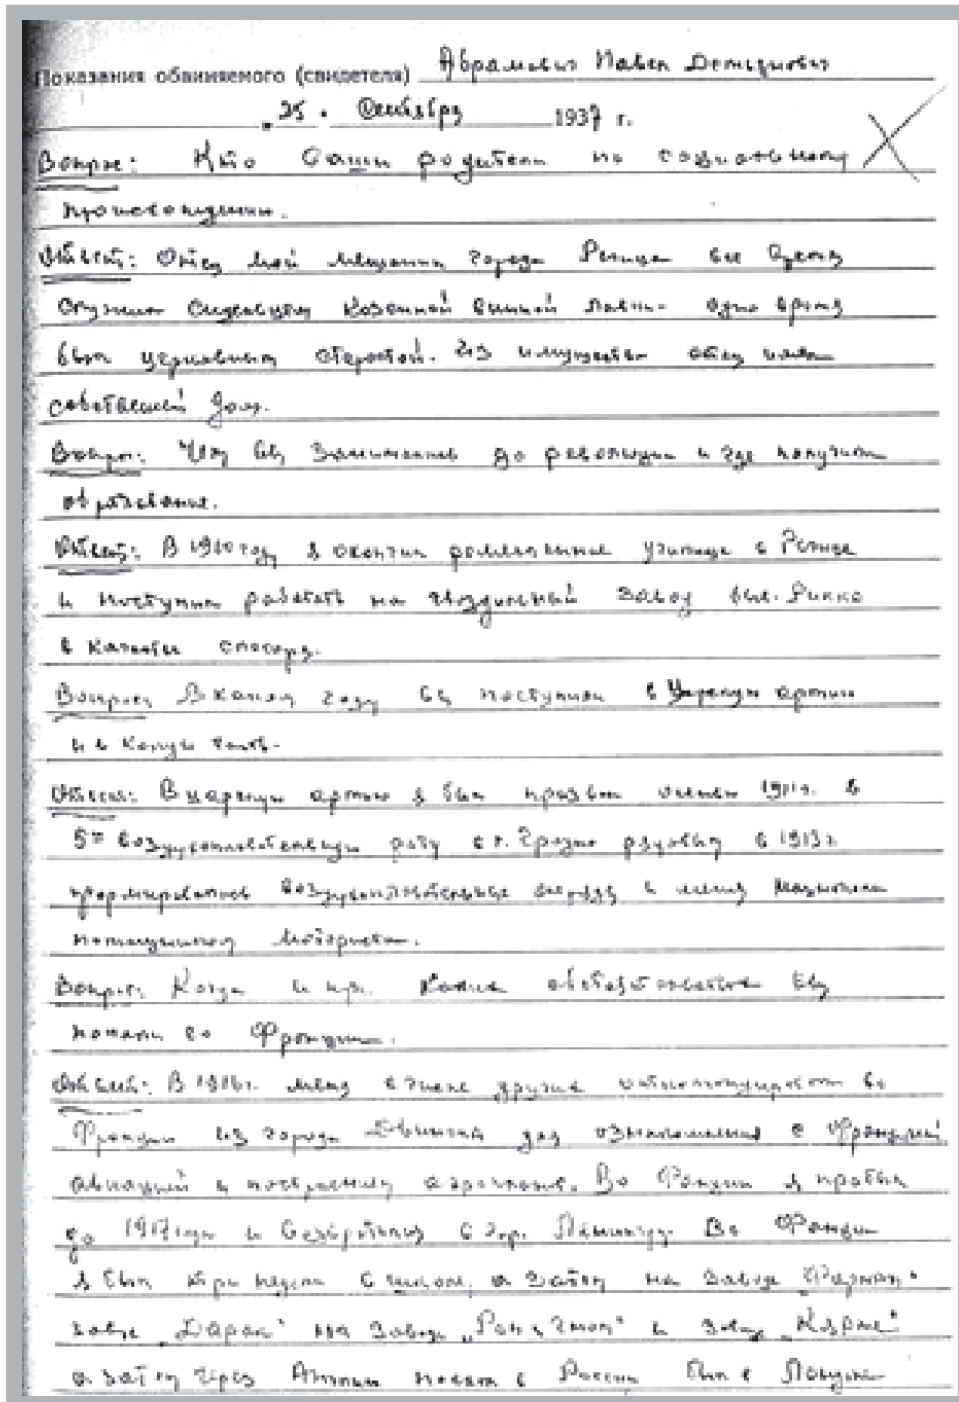 Показания обвиняемого (свидетеля) Абрамович Павел
"25" Сентября 1937 г.
Вопрос: Кто Ваши родители по социальному
происхождению.
Ответ: Отец мой мещанин города Речица все время
служил сидельцем Козенной винной лавки- одно время
был церковным старостой. Из имущества отец имел
собственный дом.
Вопрос: Чем вы занимались до революции и где получили
образование.
Ответ: В 1910 году я окончил ремесленное училище в Речице
и поступил работать на гвоздильный завод быв. Рикко
в качестве слесаря.
Вопрос: В каком году вы поступили в Царскую армию
и в какую часть.
Ответ: В царскую армию я был призван осенью 1911 г. в
5ю воздухоплавательную роту в г. Гродно рядовым в 1913 г.
воздухоплавательные отряды и меня назначили
помощником моториста.
Вопрос: Когда и при каких обстоятельствах вы
попали во Францию.
Ответ: В 1916 г. меня в числе других откомандировали во
Францию из города Двинска для ознакомления с французской
авиацией и построением аэропланов. Во Франции я пробыл
до 1917 года и возвратился в гор. Ленинград. Во Франции
я был три недели в школе, а затем на заводе "Фарман"
заводе "Дарак" на заводе "Рон и Гном" и заводе
а затем через Англию попал в Россию. Был в